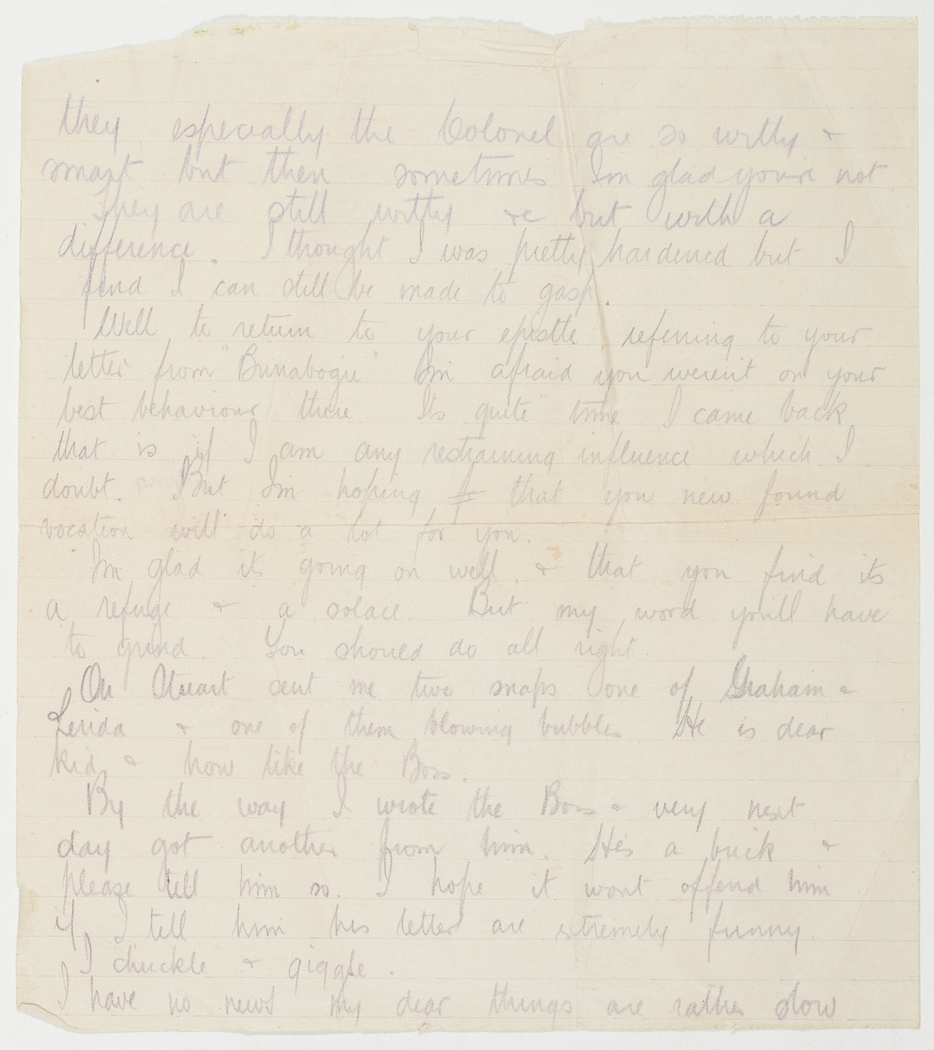 they especially the Colonel are so witty &
smart but then sometimes Im glad youre not
They are still witty &c but with a
difference. I thought I was pretty hardened but I
find I can still be made to gasp.
Well to return to your epistle referring to your
letter from "Bunabogie" Im afraid you weren't on your
best behaviour there Its quite time I came back
that is if I am any restraining influence which I
doubt. But Im hoping that you new found
vocation will do a lot for you.
Im glad its going on well & that you find its
a refuge & a solace. But my word you'll have
to grind. You should do all right.
Oh Stuart sent me two snaps one of Graham &
Lerida & one of them blowing bubbles He is dear
kid & how like the Boss.
By the way I wrote the Boss & very next
day got another from him. Hes a brick &
please tell him so. I hope it wont offend him
if I tell him his letters are extremely funny
I chuckle & giggle.
I have no news my dear things are rather slow